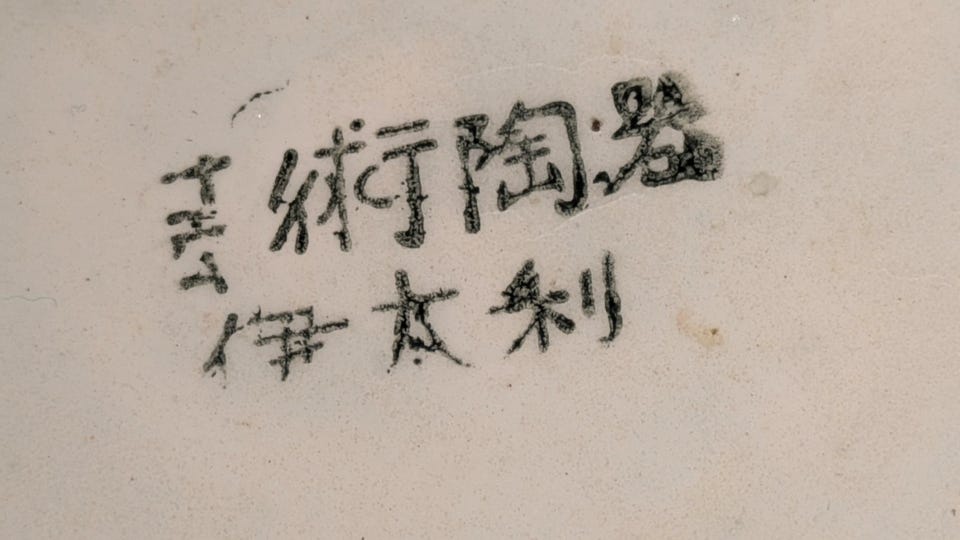 術陶器
伊太利